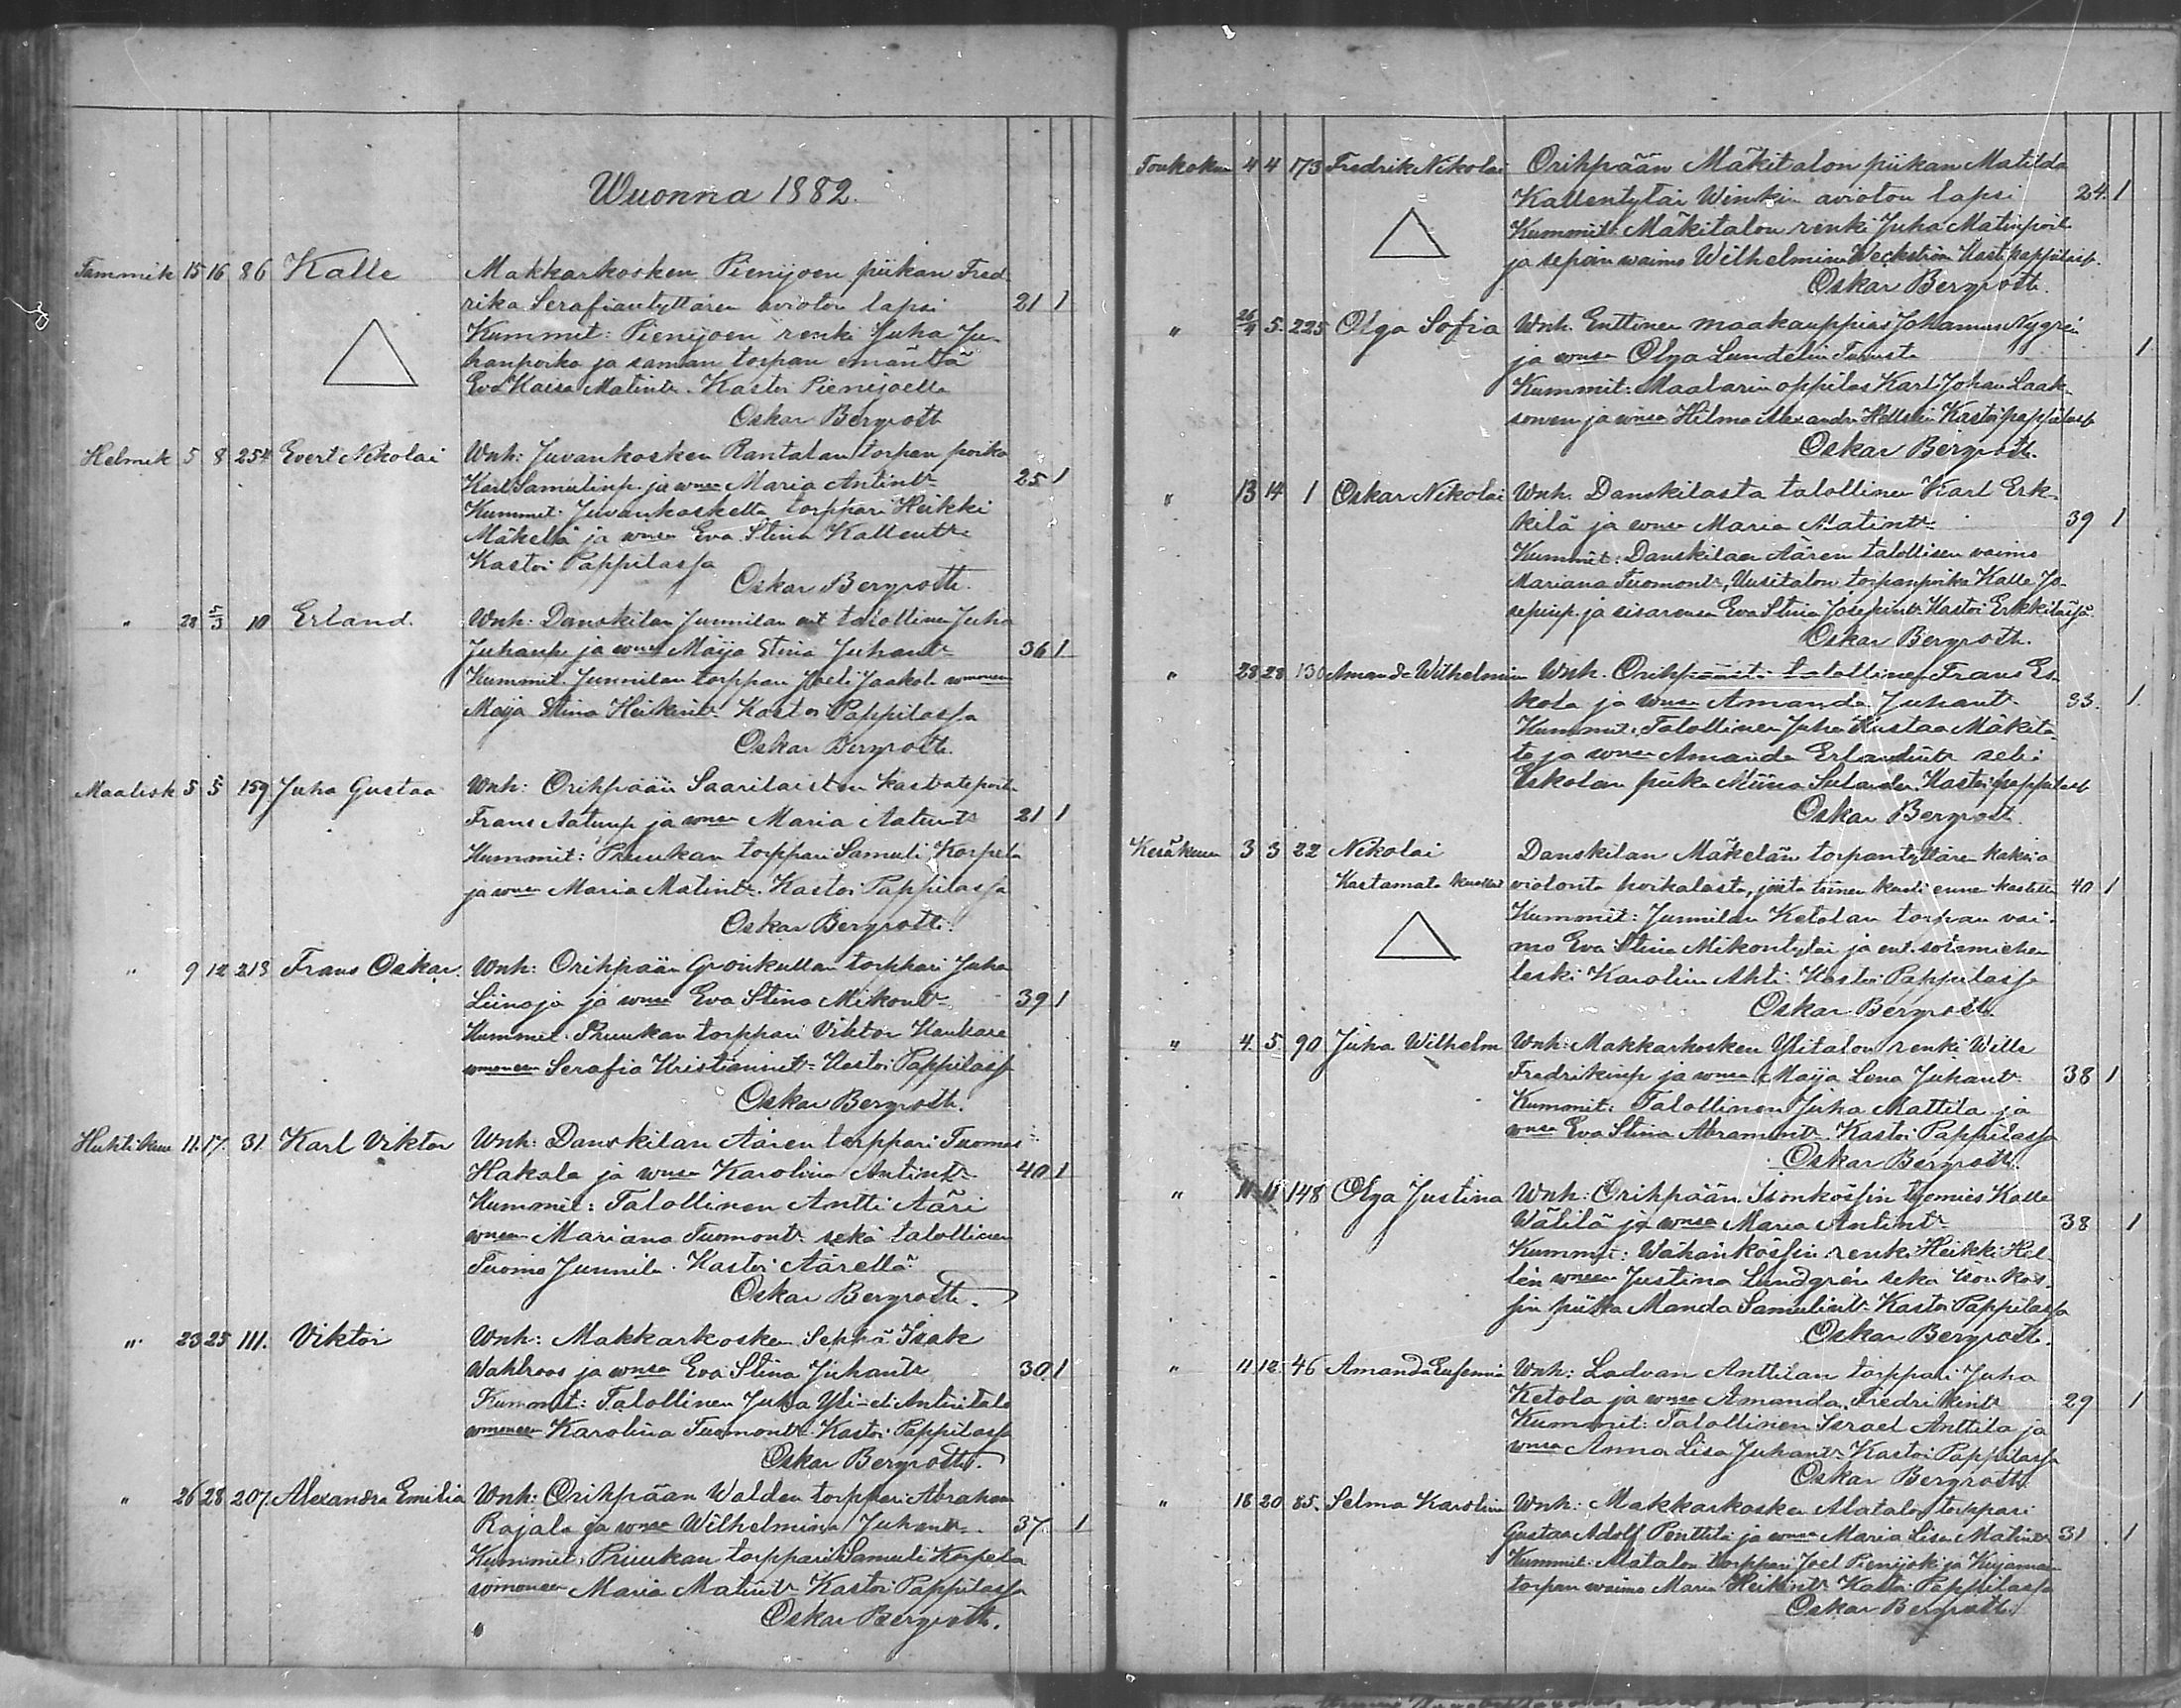 Wuonna 1882.
Tammik 15 16 86 Kalle Makkarkosken Pienijoen piikan Fred
rika Serafiantyttären avioton lapsi 21 1
Kummit: Pienijoen renki Juha Ju-
hanpoika ja saman torpan emäntä
Eva Kaisa Matintr. Kastoi Pienijoella
Oskar Bergroth
Helmik 5 8 254 Evert Nikolai Wnh: Juvankosken Rantalan torpan poika
Karl Samulinp. ja wnsa Maria Antintr 25 1
Kummit: Juvankoskella torppari Heikki
Mäkelä ja wnsa Eva Stina Kallentr
Kastoi Pappilassa
Oskar Bergroth.
" 28 5/3 10 Erland. Wnh: Danskilan Junnilan ent talollinen Juha
Juhanp. ja wnsa Maija Stina Juhantr 36 1
Kummit. Junnilan torppari Joeli Jaakola wmoneen
Maija Stina Heikintr. Kastoi Pappilassa
Oskar Bergroth.
Maalisk 5 5 159. Juha Gustaa Wnh: Orihpään Saarilaiston
Frans Aatunp ja wnsa Maria Aatuntr 21 1
Kummit: Pruukan torppari Samuli Korpela
ja wnsa Maria Matintr. Kastoi Pappilassa
Oskar Bergroth.
" 9 12 213 Frans Oskar. Wnh: Orihpään Grönkullan torppari Juha
Liinoja ja wnsa Eva Stina Mikontr 39 1
Kummit. Pruukan torppari Viktor
wmoneen Serafia Kristianintr. Kastoi Pappilassa
Oskar Bergroth.
Huhtikuu 11. 17. 31. Karl Viktor Wnh: Danskilan Äären torppari Tuomas
Hakala ja wnsa Karolina Antintr 40 1
Kummit: Talollinen Antti Ääri
wnsa Mariana Tuomontr sekä talollinen
Tuomo Junnila. Kastoi Äärellä
Oskar Bergroth.
" 23 25 111. Viktor Wnh: Makkarkosken Seppä Isak
Wahlroos ja wnsa Eva Stina Juhantr 30 1
Kummit: Talollinen Juha Yli-eli Anttitalo
wmoneen Karolina Tuomontr. Kastoi Pappilassa
Oskar Bergroth.
" 26 28 207. Alexandra Emilia Wnh: Orihpään Walden torppari Abraham
Rajala ja wnsa Wilhelmina Juhantr. 37. 1
Kummit: Pruukan torppari Samuli Korpela
wmoneen Maria Matintr. Kastoi Pappilassa
Oskar Bergroth.
Toukokuu 4 4 173 Fredrik Nikolai Orihpään Mäkitalon piikan Matilda
Kallentytär Winkin avioton lapsi 24. 1
Kummit: Mäkitalon renki Juha Matinpoik
ja sepän waimo Wilhelmina Weckström Kasti pappilass.
Oskar Bergroth.
" 26/4 5. 225 Olga Sofia Wnh. Enttinen maakauppias Johannes Nygrén
ja wnsa Olga Lundelin Turusta 1
Kummit: Maalarin oppilas Karl Johan Laak-
sonen ja wnsa Hilma Alexandra Kastoi pappilass
Oskar Bergroth.
" 13 14 1 Oskar Nikolai Wnh. Danskilasta talollinen Karl Erk-
kilä ja wnsa Maria Matintr. 39 1
Kummit: Danskilan Äären talollisen vaimo
Mariana Tuomontr, Uusitalon torpanpoika Kalle Jo-
sepinp. ja sisarensa Eva Stina Josepintr. Kastoi Erkkilässä
Oskar Bergroth.
" 28 28 130 Amanda Wilhelmiin Wnh. Orihpäästä talollinen Frans Es-
kola ja wnsa Amanda Juhantr 33. 1.
Kummit: Talollinen Juha Kustaa Mäkita-
lo ja wnsa Amanda Erlandintr sekä
Eskolan piika Miina Selander. Kastoi pappilass
Oskar Bergroth.
Kesäkuu 3 3 22 Nikolai Danskilan Mäkelän torpantyttären kaksio
Kastamata kuollut aviotonta poikalasta, joista toinen kuoli ennen kastetta 40 1
Kummit: Junnilan Ketolan torpan vai-
mo Eva Stina Mikontytär ja ent. sotamiehen
leski Karolina Ahti. Kastoi Pappilassa
Oskar Bergroth.
" 4. 5. 90 Juha Wilhelm Wnh: Makkarkosken Ylitalon renki Wille
Fredrikinp ja wnsa Maija Lena Juhantr. 38 1
Kummit: Talollinen Juha Mattila ja
wnsa Eva Stina Abramintr. Kastoi Pappilassa
Oskar Bergroth.
" 11 148 Olga Justina Wnh: Orihpään Isonkössin työmies Kalle
Wälilä ja wnsa Maria Antintr 38 1
Kummit: Wähänkössin renki Heikki Hel-
lén wnsa Justina Lundgrén sekä Isonkös-
sin piika Manda Samulintr. Kastoi Pappilassa
Oskar Bergroth.
" 11 12 46 Amanda Eufemia Wnh: Ladvan Anttilan torppari Juha
Ketola ja wnsa Amanda Fredrikintr 29 1
Kummit: Talollinen Israel Anttila ja
wnsa Anna Lisa Juhantr. Kastoi Pappilassa
Oskar Bergroth.
" 18 20 85. Selma Karolin Wnh: Makkarkosken Alatalon torppari
Gustaa Adolf Penttilä ja wnsa Maria Lisa Matintr 31 1
Kummit: Alatalon torppari Joel Pienijoki ja Kujanmaan
torpan waimo Maria Heikintr Kastoi Pappilassa
Oskar Bergroth.